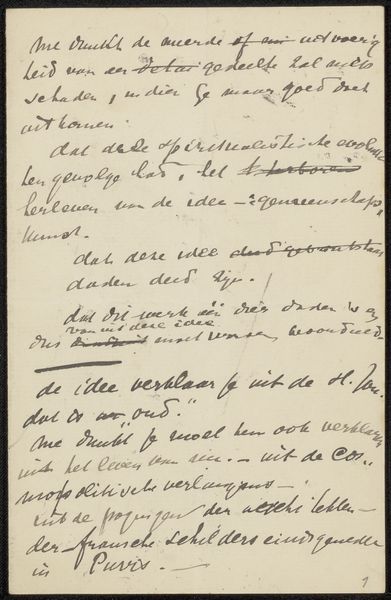 me dunkt de meerde of en uitvoerig
heid van een detai gedeelte zal niets
schaden, indien je maar goed doet
uitkomen.
dat deze spiritualistische evolutie
ten gevolge had, het t herboren
herleven van de idee — gemeenschaps"
kunst.
dat deze idee deed
daden deed zijn.
dat dit werk één dier daden is en
van uit deze idee
dus moet worden beoordeeld.
de idee verklaar je uit de
dat is oud."
me dunkt je moet hen ook verklaren
uit het leven van — uit de Cos„
mopolitische verlangens —
uit de pogingen der architecten —
der fransche schilders eindigende
in Puvis. —
1